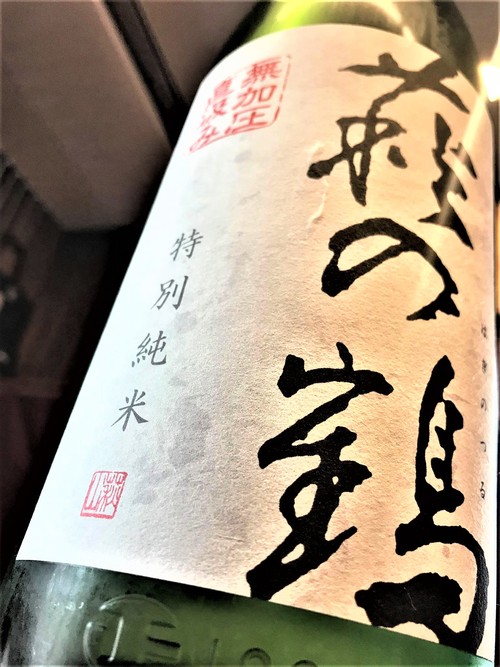 萩の鶴
はぎのつる
無加圧
直汲み
特別純米
萩